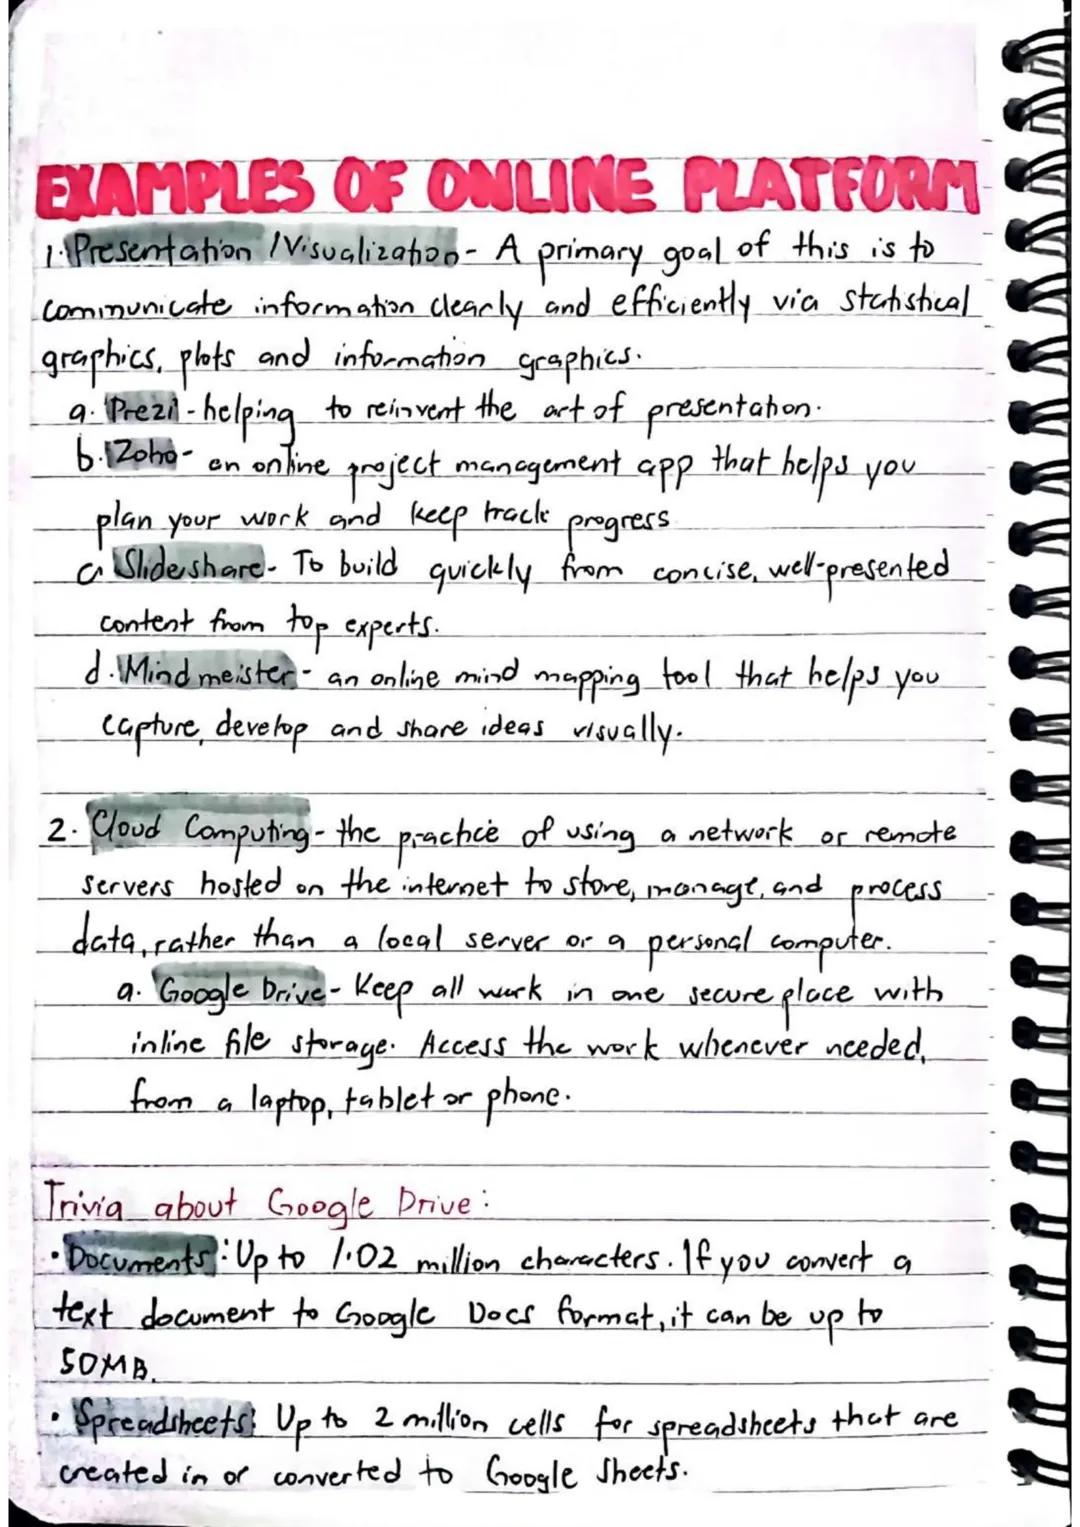 EXAMPLES OF ONLINE PLATFORM
1. Presentation / Visualization - A primary goal of this is to
communicate information clearly and efficiently via statistical
graphics, plots and information graphics.
a. Prezi - helping to reinvent the art of presentation.
b. Zoho - an online project management app that helps you
plan your work and keep track progress
c. Slideshare - To build quickly from concise, well-presented
content from top experts.
d. Mind meister - an online mind mapping tool that helps you
capture, develop and share ideas visually.
2. Cloud Computing - the practice of using a network or remote
servers hosted on the internet to store, manage, and process
data, rather than a local server or a personal computer.
a. Google Drive - Keep all work in one secure place with
inline file storage. Access the work whenever needed,
from a laptop, tablet or phone.
Trivia about Google Drive:
• Documents: Up to 1.02 million characters. If you convert a
text document to Google Docs format, it can be up to
50MB.
• Spreadsheets: Up to 2 million cells for spreadsheets that are
created in or converted to Google Sheets.